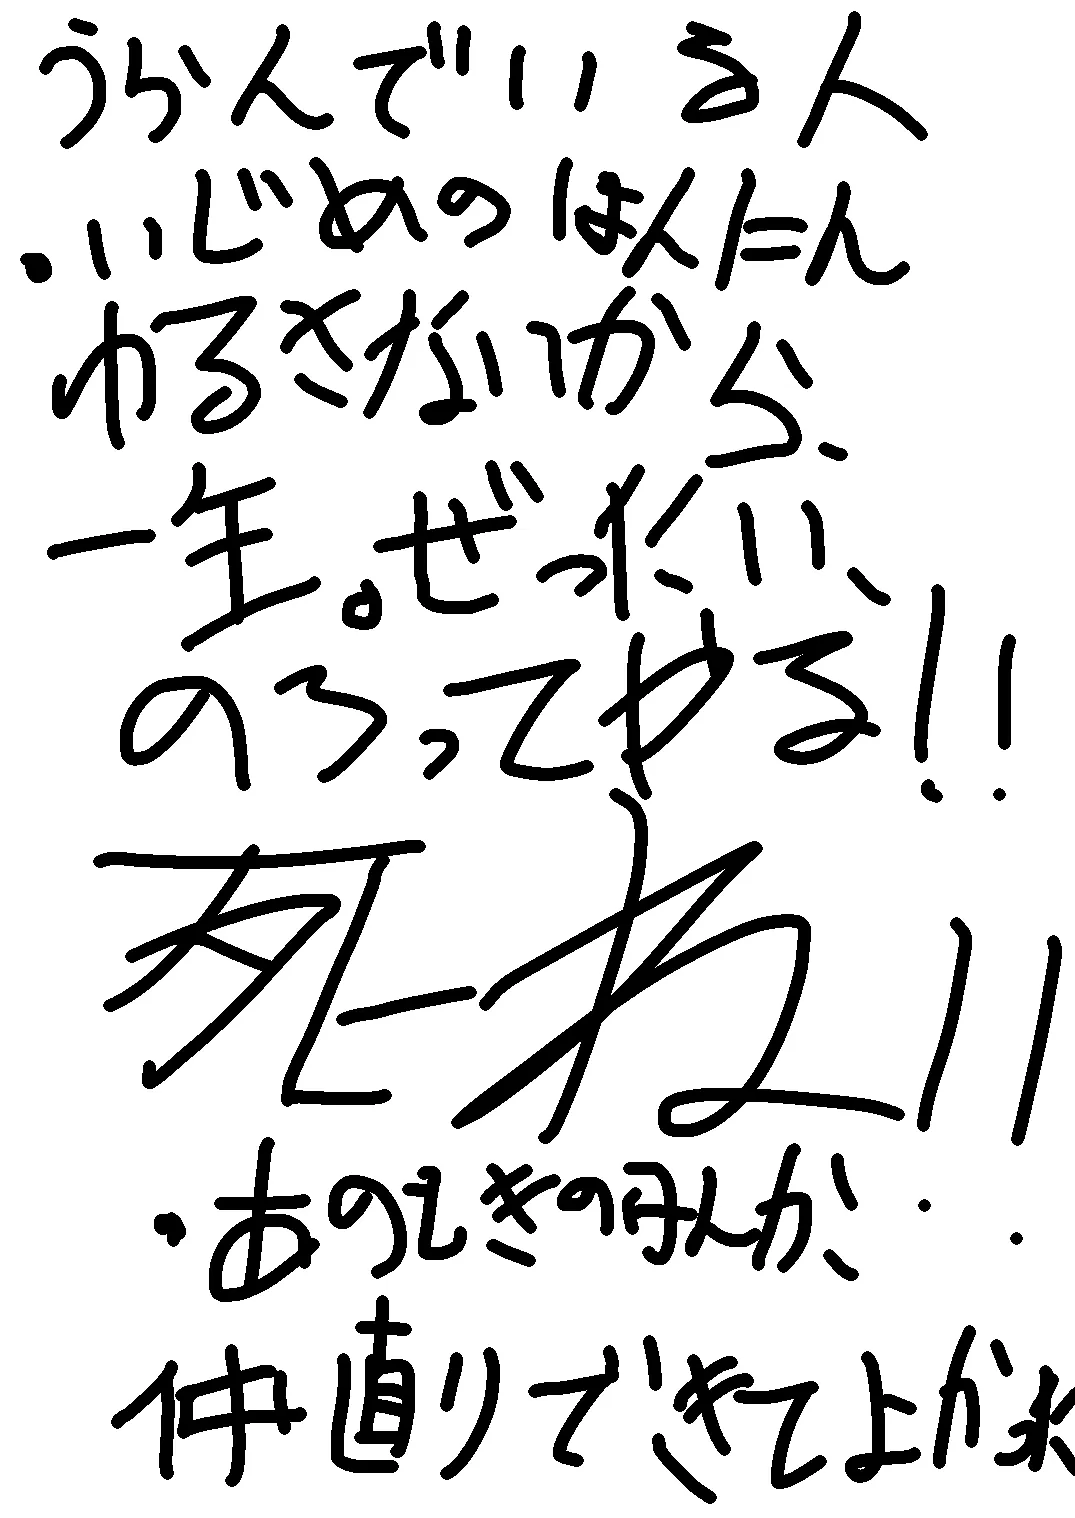 うらんでいる人
・いじめのはんにん
ゆるさないから、
一年。ぜったい、
のろってやる!!
死ね!!
・あのときの
仲直りできてよかった